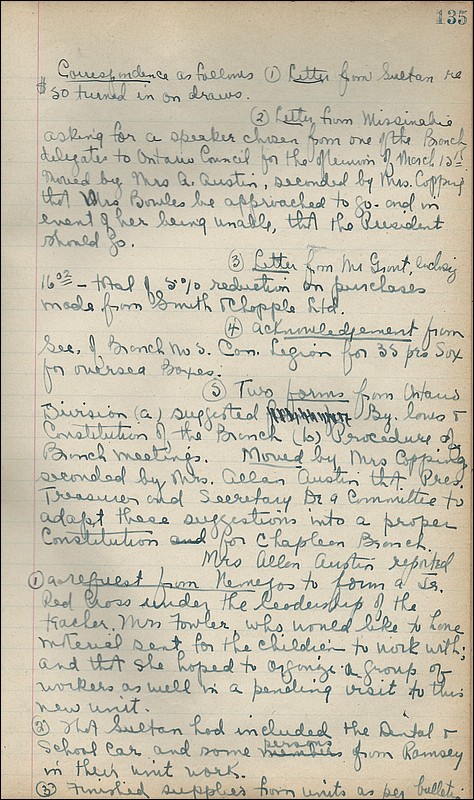 135
Correspondence as follows ① Letter from Sultan re
$50 turned in on draws.
② Letter from Missinabie
asking for a speaker chosen from one of the Branch
delegates to Ontario Council for the afternoon of March 15th
Moved by Mrs A. Austin, seconded by Mrs. Copping
that Mrs Bowles be approached to go and in
event of her being unable, that the President
should go.
③ Letter from Mr Grant, enclosing
16.02 - total of 5% reduction on purchases
made from Smith & Chapple Ltd.
④ acknowledgement from
Sec. of Branch No 5. Can. Legion for 35 prs Sox
for oversea Boxes.
⑤ Two forms from Ontario
Division (a) suggested By. laws &
Constitution of the Branch (b) Procedure of
Branch meetings. Moved by Mrs Copping
seconded by Mrs. Allan Austin that Pres.
Treasurer and Secretary Be a Committee to
adapt these suggestions into a proper
Constitution and for Chapleau Branch.
Mrs Allan Austin reported
① a request from Nemegos to form a Jr.
Red Cross under the leadership of the
teacher, Mrs Fowler, who would like to have
material sent for the children to work with;
and that she hoped to organize a group of
workers as well in a pending visit to this
new unit.
② That Sultan had included the Dental &
School car and some members persons from Ramsey
in their unit work.
③ Finished supplies from units as per bulletin